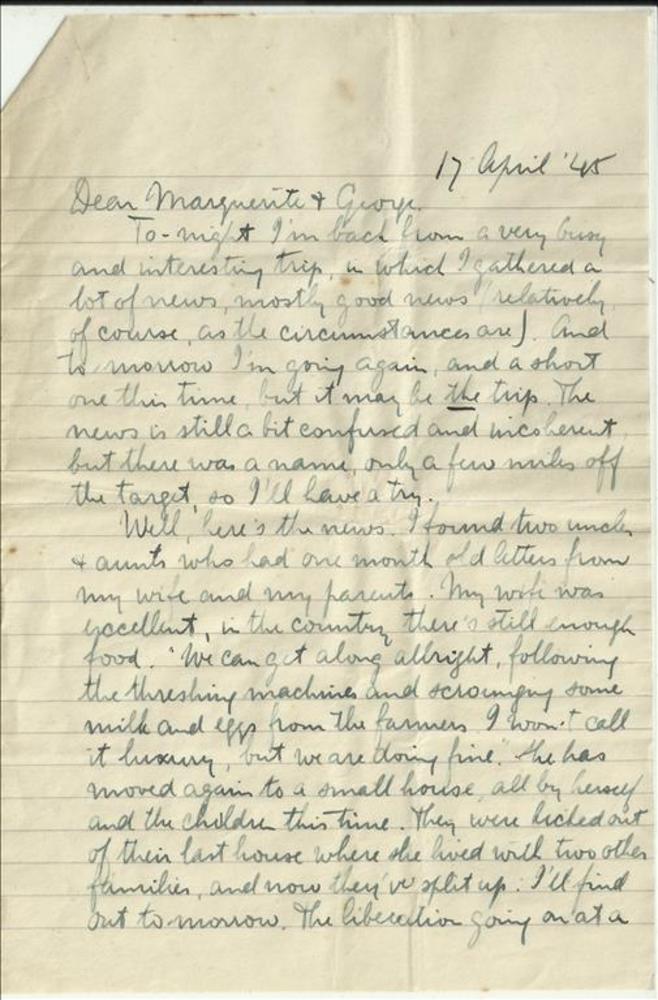 17 April '45
Dear Marguerite & George.
To-night I'm back from a very busy
and interesting trip, in which I gathered a
lot of news, mostly good news (relatively,
of course, as the circumstances are). And
to morrow I'm going again, and a short
one this time, but it may be the trip. The
news is still a bit confused and incoherent,
but there was a name, only a few miles off
the target, so I'll have a try.
Well, here's the news. I found two uncles
& aunts who had one month old letters from
my wife and my parents. My wife was
excellent, in the country there's still enough
food. "We can get along allright, following
the threshing machines and scrounging some
milk and eggs from the farmers. I won't call
it luxury, but we are doing fine." She has
moved again to a small house, all by herself
and the children this time. They were kicked out
of their last house where she lived with two other
families, and now they've split up. I'll find
out to morrow. The liberation going on at a